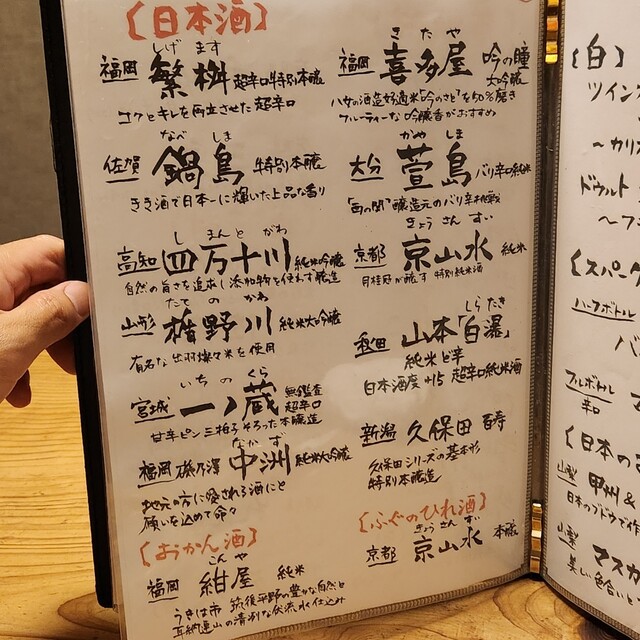 【日本酒】
しげ ます
福岡 繁桝 超辛口特別本醸
コクとキレを両立させた超辛口
なべ しま
佐賀 鍋島 特別本醸
きき酒で日本一に輝いた上品な香り
し まんと がわ
高知 四万十川 純米吟醸
自然の旨さを追求し添加物を使わず醸造
たて の かわ
山形 楯野川 純米大吟醸
有名な出羽燦々米を使用
いち の くら
宮城 一ノ蔵 無鑑査 超辛口
甘辛ピン三拍子そろった本醸造
なか ず
福岡 磯乃澤 中洲 純米大吟醸
地元の方に愛される酒にと
願いを込めて命名
【おかん酒】
こん や
福岡 紺屋 純米
うきは市 筑後平野の豊かな自然と
耳納連山の清冽な伏流水仕込み
き た や
福岡 喜多屋 吟の瞳
大吟醸
八女の酒造好適米「吟のさと」を50%磨き
フルーティーな吟醸香がおすすめ
かや しま
大分 萱島 バリ辛口純米
「西の関」醸造元のバリ辛
きょう さん すい
京都 京山水 純米
月桂冠が醸す 特別純米酒
しらたき
秋田 山本「白瀑」
純米ど辛
日本酒度+15 超辛口純米酒
新潟 久保田 百寿
久保田シリーズの基本形
特別本醸造
【ふぐのひれ酒】
きょう さん すい
京都 京山水 本醸
【白】
ツイン
～カリ
ドゥルト
～フ
【スパーク
ハーフボトル
バ
フルボトル
辛口
【日本の
山梨 甲州&
日本のブドウで作
山梨 マスカ
美しい色合いと